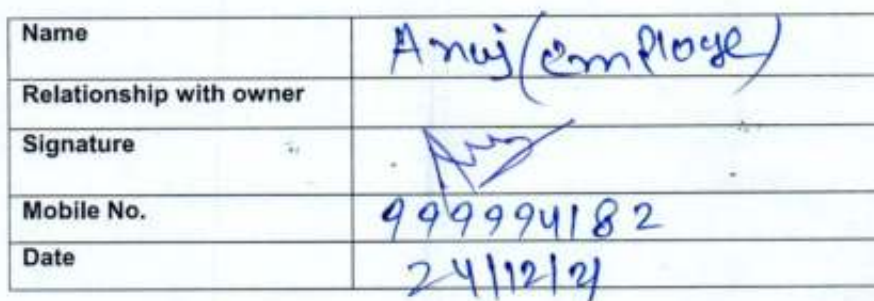 Name Anuj (employe)
Relationship with owner
Signature Anuj
Mobile No. 999994182
Date 24/12/21